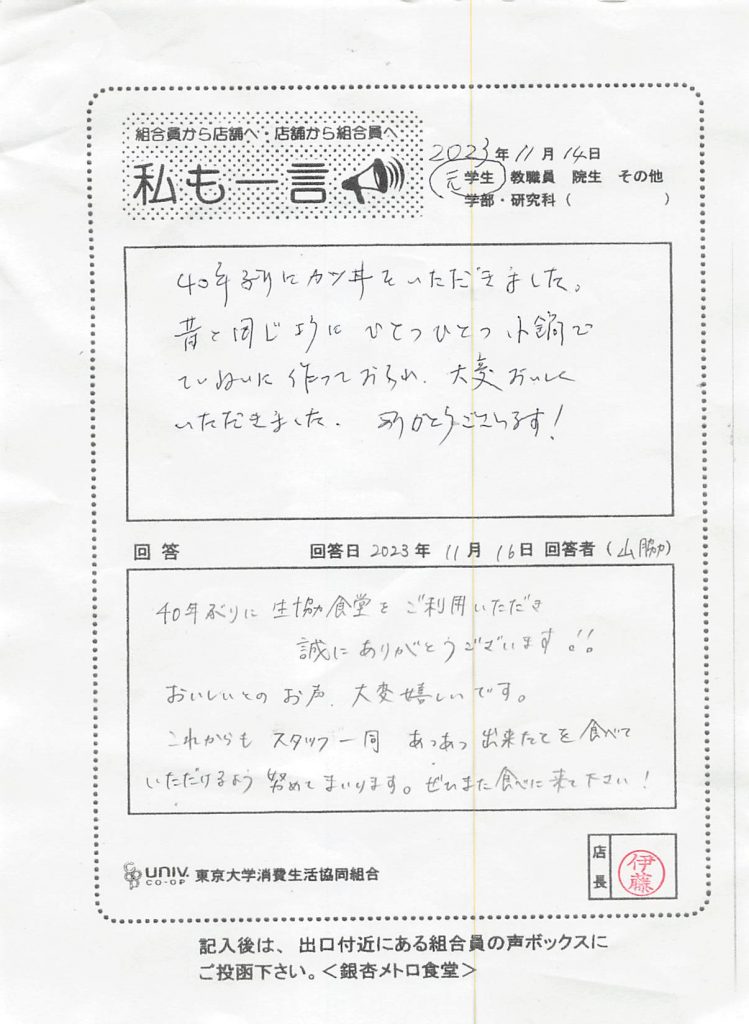 組合員から店舗へ・店舗から組合員へ
私も一言
2023年11月14日
元学生 教職員 院生 その他
学部・研究科（ ）
40年ぶりにカツ丼をいただきました。
昔と同じように ひとつひとつ 小鍋で
ていねいに作っておられ、大変おいしく
いただきました。 ありがとうございます！
回答 回答日 2023年 11月 16日 回答者（山脇）
40年ぶりに 生協食堂を ご利用いただき
誠にありがとうございます!!
おいしいとの お声、大変嬉しいです。
これからも スタッフ一同 あつあつ 出来たてを食べて
いただけるよう 努めてまいります。ぜひまた食べに来て下さい！
UNIV. CO-OP 東京大学消費生活協同組合
店長 伊藤
記入後は、出口付近にある組合員の声ボックスに
ご投函下さい。＜銀杏メトロ食堂＞